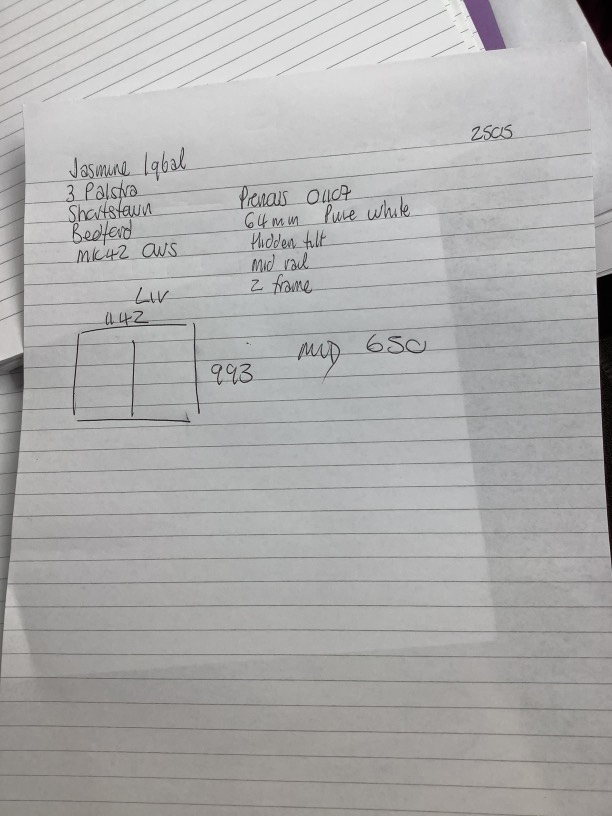 2505
Jasmine Iqbal
3 Palstra
Shortstown
Bedford
MK42 0WS
64mm Pure white
Hidden tilt
Mid rail
Z frame
LIV
993
MID 650